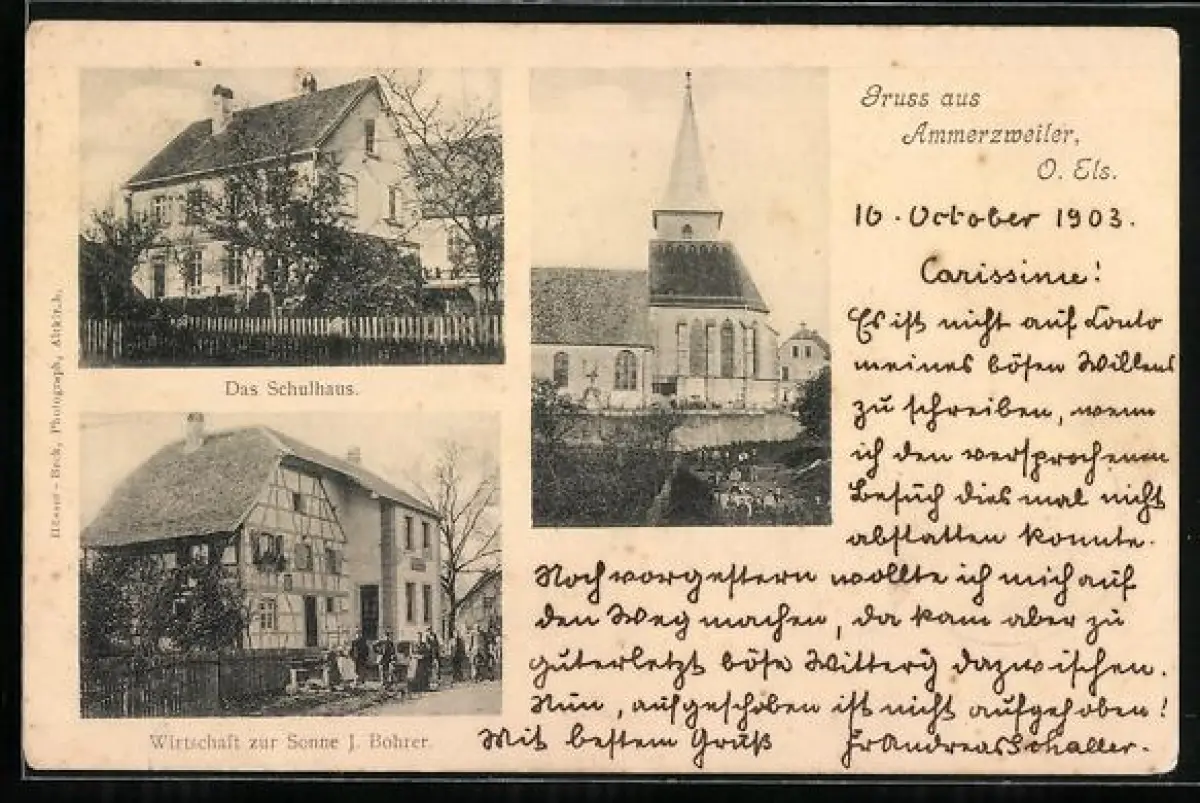 Gruss aus
Ammerzweiler,
O. Els.
16. October 1903.
Carissime!
Es ist nicht auf Conto
meines bösen Willens
zu schreiben, wenn
ich den versprochenen
Besuch diesmal nicht
abstatten konnte.
Noch vorgestern wollte ich mich auf
den Weg machen, da kam aber zu
guterletzt böse Witterg dazwischen.
Nun, aufgeschoben ist nicht aufgehoben!
Mit bestem Gruß Fr Andreas Schaller.
Das Schulhaus.
Wirtschaft zur Sonne J. Bohrer.
Beck, Photograph, Altkirch.